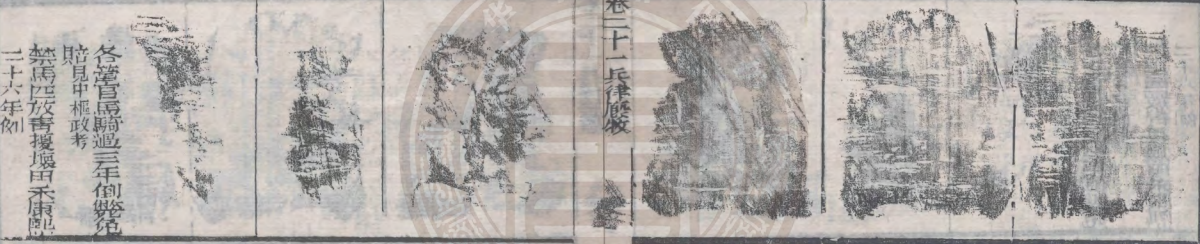 卷二十一兵律廐牧
各營官馬騎過三年倒斃免
賠見中樞政考
禁馬匹放青擾壞田禾康熙
二十六年例